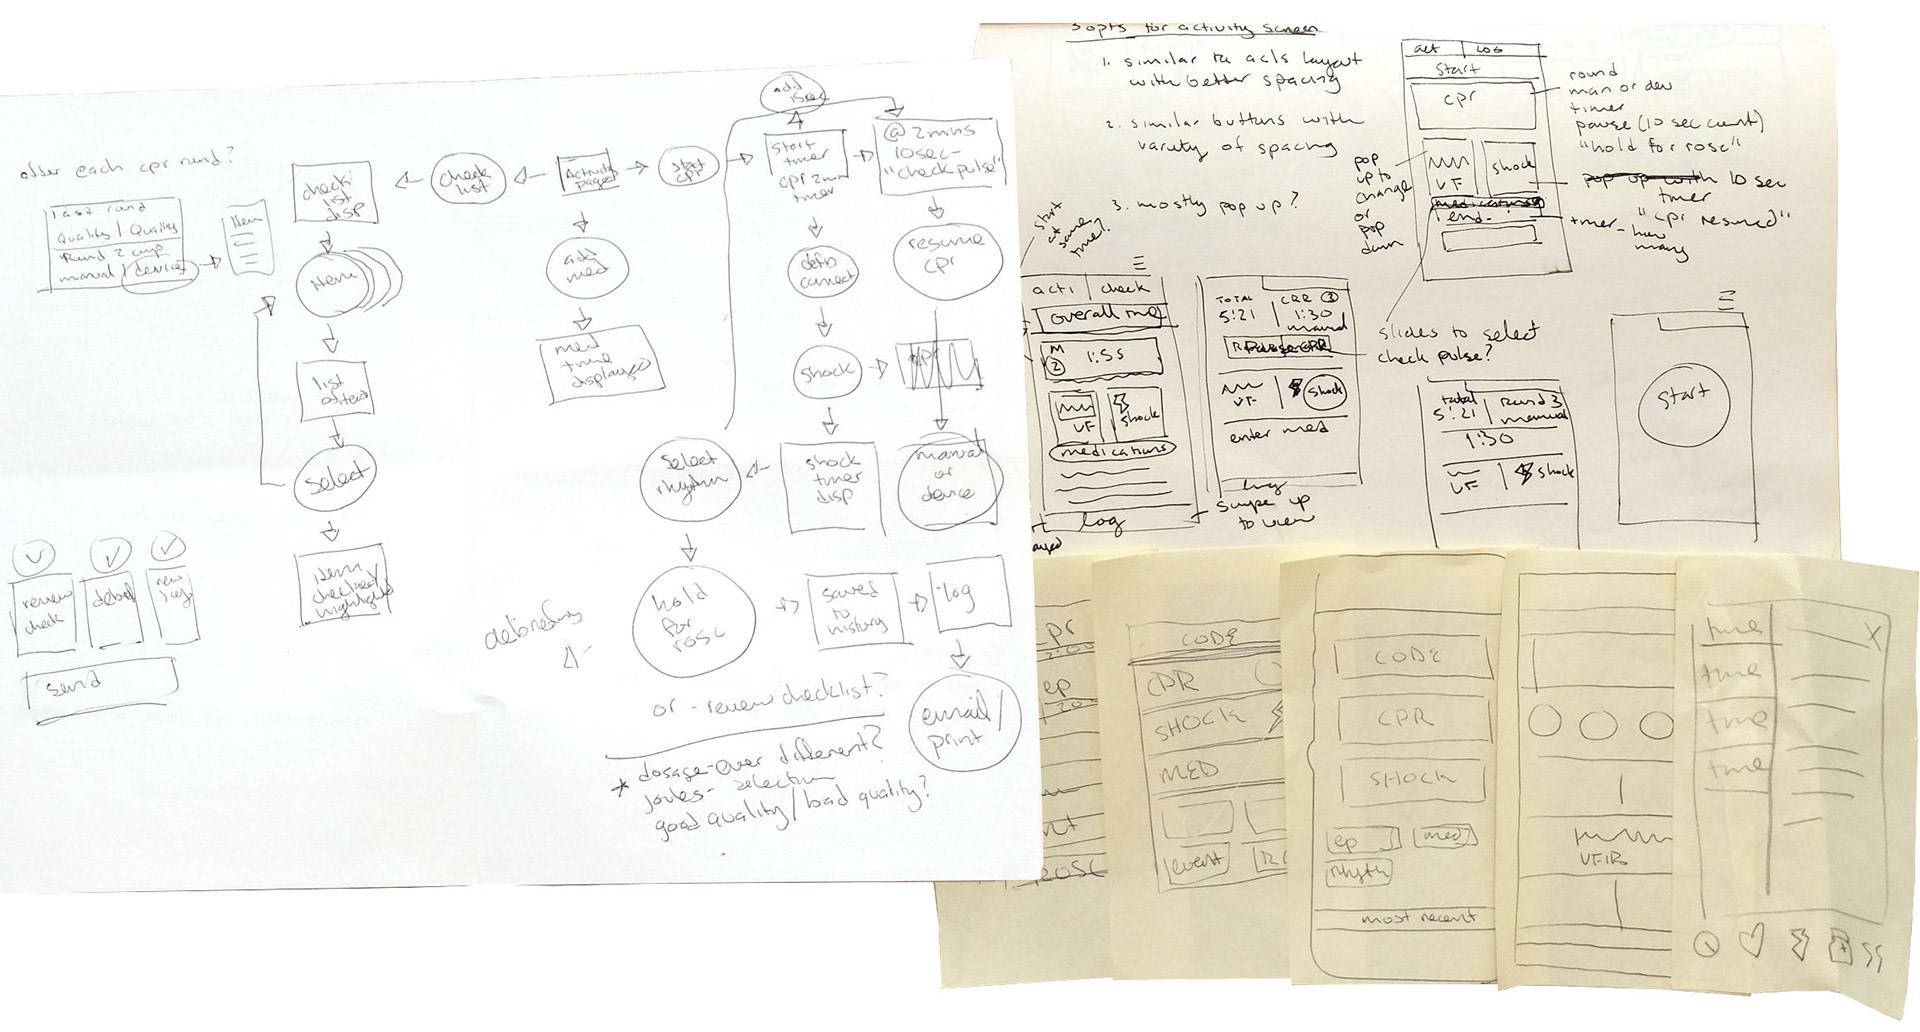 after each cpr round?
last round
Quality / Quality
Round 2 cmp
manual / device
Item
check
list
disp
check
list
Activity
pages
start
cpr
start
timer
cpr 2min
timer
add
@ 2mins
10sec-
"check pulse"
Item
add
med
defib
connect
resume
cpr
list
med
time
displayed
shock
select
select
rhythm
shock
timer
disp
manual
or
device
item
checked/
highlighted
review
check
debrief
new
send
debriefing
hold
for
rosc
saved
to
history
log
or - review checklist?
email/
print
* dosage-ever different?
joules- selection
good quality/bad quality?
3 opts for activity screen
1. similar to acls layout
with better spacing
2. similar buttons with
variety of spacing
3. mostly pop up?
start
at
same
time?
act
log
start
cpr
VF
shock
medications
end
round
man or dev
timer
pause (10 sec count)
"hold for rosc"
pop up with 10 sec
timer
"cpr resumed"
timer - how
many
pop
up to
change
or
pop
down
acti
check
overall time
M
2
1:55
VF
shock
medications
log
TOTAL
5:21
CPR 3
1:30
manual
Pause CPR
VF
shock
enter med
log
swipe up
to view
slides to select
check pulse?
total
5:21
Round 3
manual
1:30
VF
shock
start
cpr
2:00
ep
ROSC
CODE
CPR
SHOCK
MED
event
CODE
CPR
SHOCK
ep
med
rhythm
most recent
time
time
time
time
X